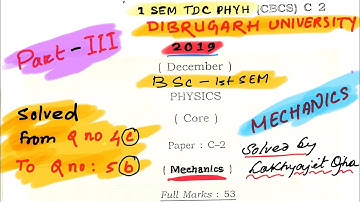 1 SEM TDC PHYH (CBCS) C 2
DIBRUGARH UNIVERSITY
Part - III
2019
( December )
BSc - 1st SEM
PHYSICS
( Core )
MECHANICS
Solved
from Q no 4 c
To Q no : 5 b
Paper : C-2
( Mechanics )
Solved by
Lakhyajet Ojha
Full Marks : 53